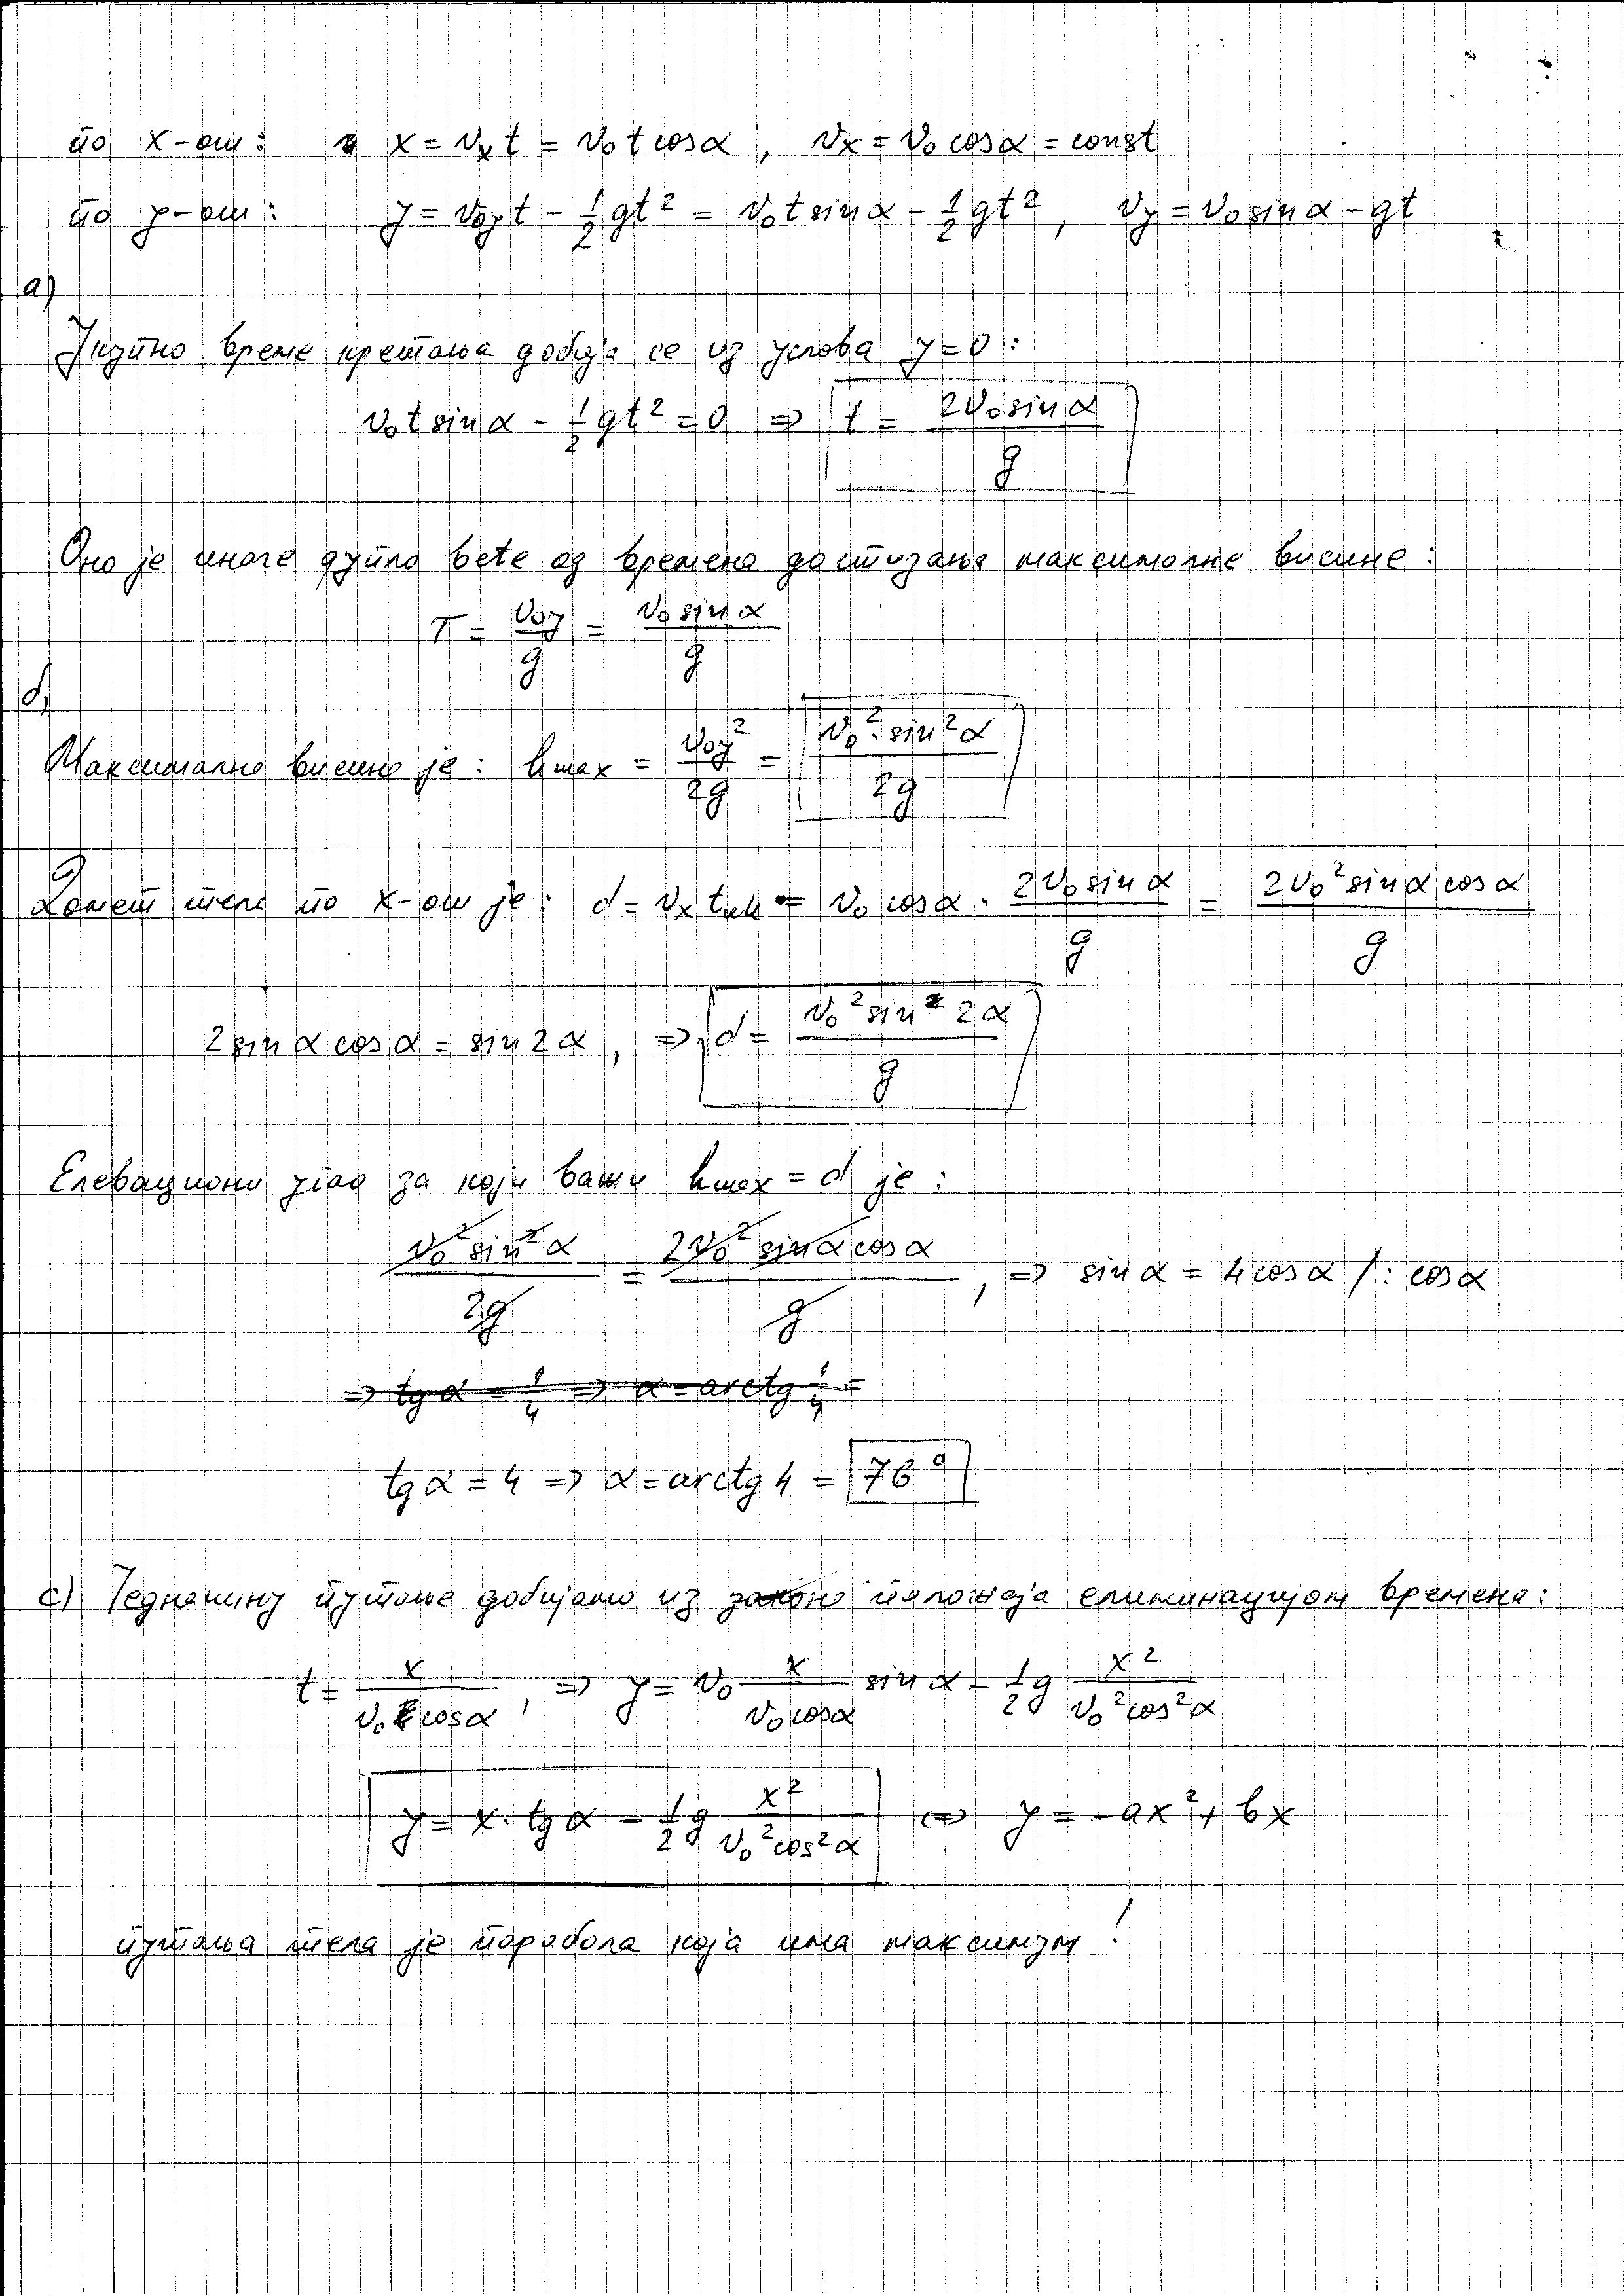 по x-оси: x = v₀ₓt = v₀ t cosα , vₓ = v₀ cosα = const
по y-оси: y = v₀ᵧ t - 1/2 gt² = v₀ t sinα - 1/2 gt² , vᵧ = v₀ sinα - gt
a)
Укупно време кретања добија се из услова y = 0 :
v₀ t sinα - 1/2 gt² = 0 ⇒ t = 2v₀ sinα / g
Оно је иначе дупло веће од времена достизања максималне висине :
T = v₀ᵧ / g = v₀ sinα / g
б)
Максимална висина је : hmax = v₀ᵧ² / 2g = v₀² · sin²α / 2g
Домет тела по x-оси је : d = vₓ tук = v₀ cosα · 2v₀ sinα / g = 2v₀² sinα cosα / g
2 sinα cosα = sin2α , ⇒ d = v₀² sin 2α / g
Елевациони угао за који важи hmax = d је :
v₀² sin²α / 2g = 2v₀² sinα cosα / g , ⇒ sinα = 4 cosα / : cosα
⇒ tgα = 1/4 ⇒ α = arctg 1/4 =
tgα = 4 ⇒ α = arctg 4 = 76°
c) Једначину путање добијамо из закона положаја елиминацијом времена :
t = x / v₀ cosα , ⇒ y = v₀ x / v₀ cosα sinα - 1/2 g x² / v₀² cos²α
y = x · tgα - 1/2 g x² / v₀² cos²α ⇔ y = -ax² + bx
путања тела је парабола која има максимум !